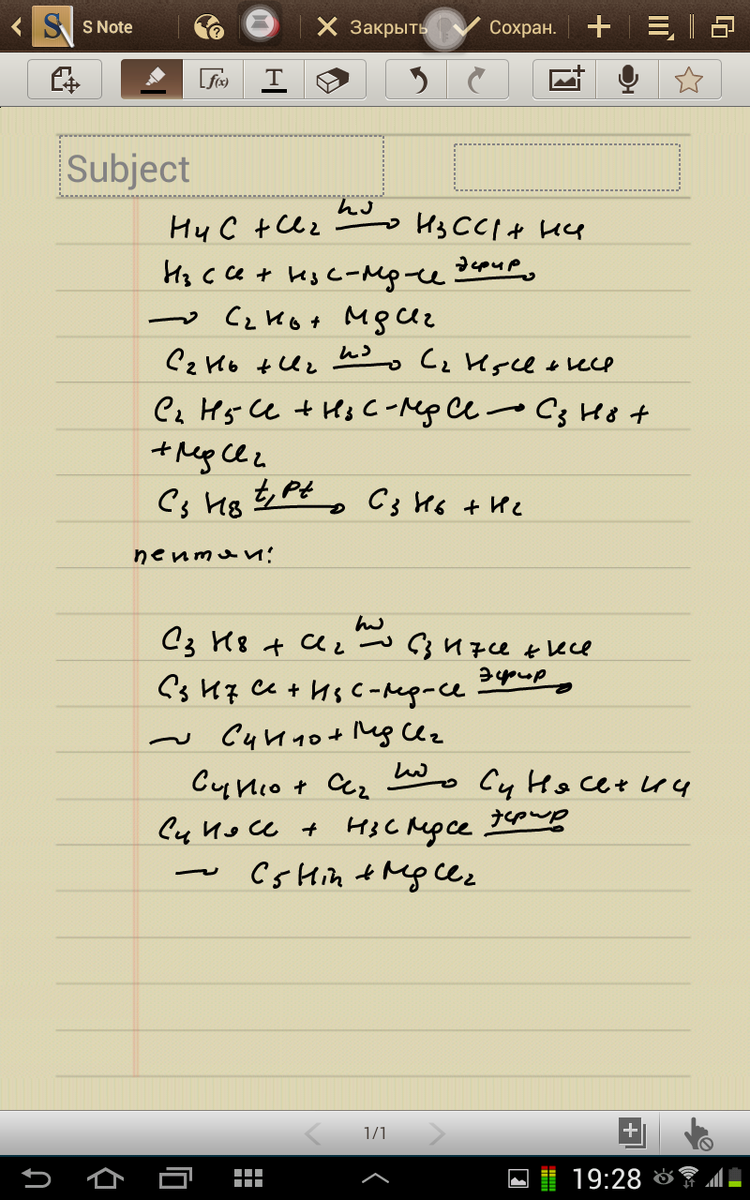 S Note
Закрыть
Сохран.
f(x)
T
Subject
H4C + Cl2 hν→ H3CCl + HCl
H3CCl + H3C-Mg-Cl эфир→
→ C2H6 + MgCl2
C2H6 + Cl2 hν→ C2H5Cl + HCl
C2H5Cl + H3C-MgCl → C3H8 +
+ MgCl2
C3H8 t, Pt→ C3H6 + H2
пентан:
C3H8 + Cl2 hν→ C3H7Cl + HCl
C3H7Cl + H3C-Mg-Cl эфир→
→ C4H10 + MgCl2
C4H10 + Cl2 hν→ C4H9Cl + HCl
C4H9Cl + H3CMgCl эфир→
→ C5H12 + MgCl2
1/1
19:28